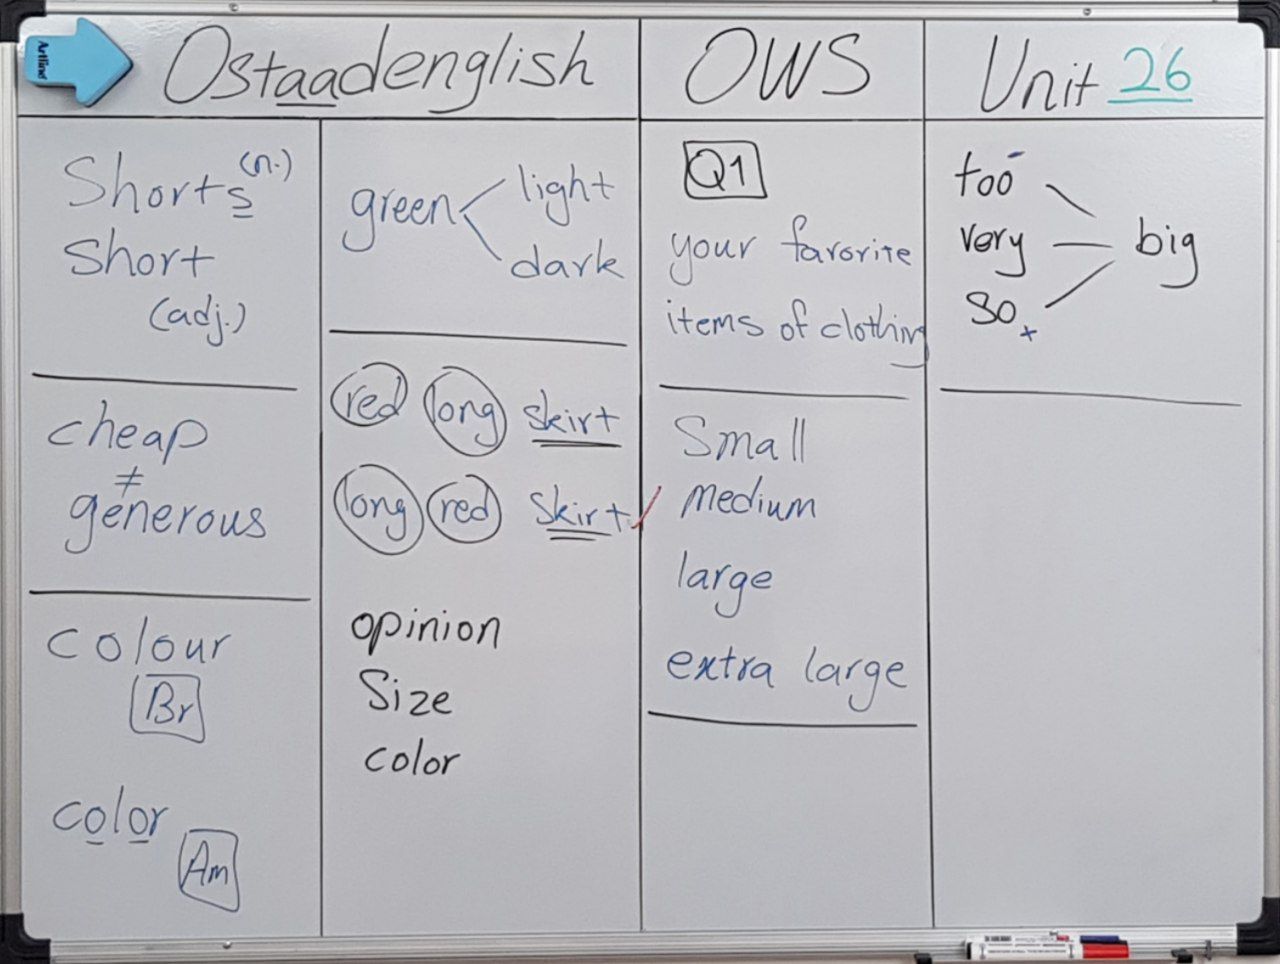 Artline
Ostaadenglish
OWS
Unit 26
Shorts (n.)
Short
(adj.)
cheap
≠
generous
colour
Br
color
Am
green
light
dark
red long skirt
long red skirt ✓
opinion
Size
color
Q1
your favorite
items of clothing
Small
medium
large
extra large
too -
very
so +
big